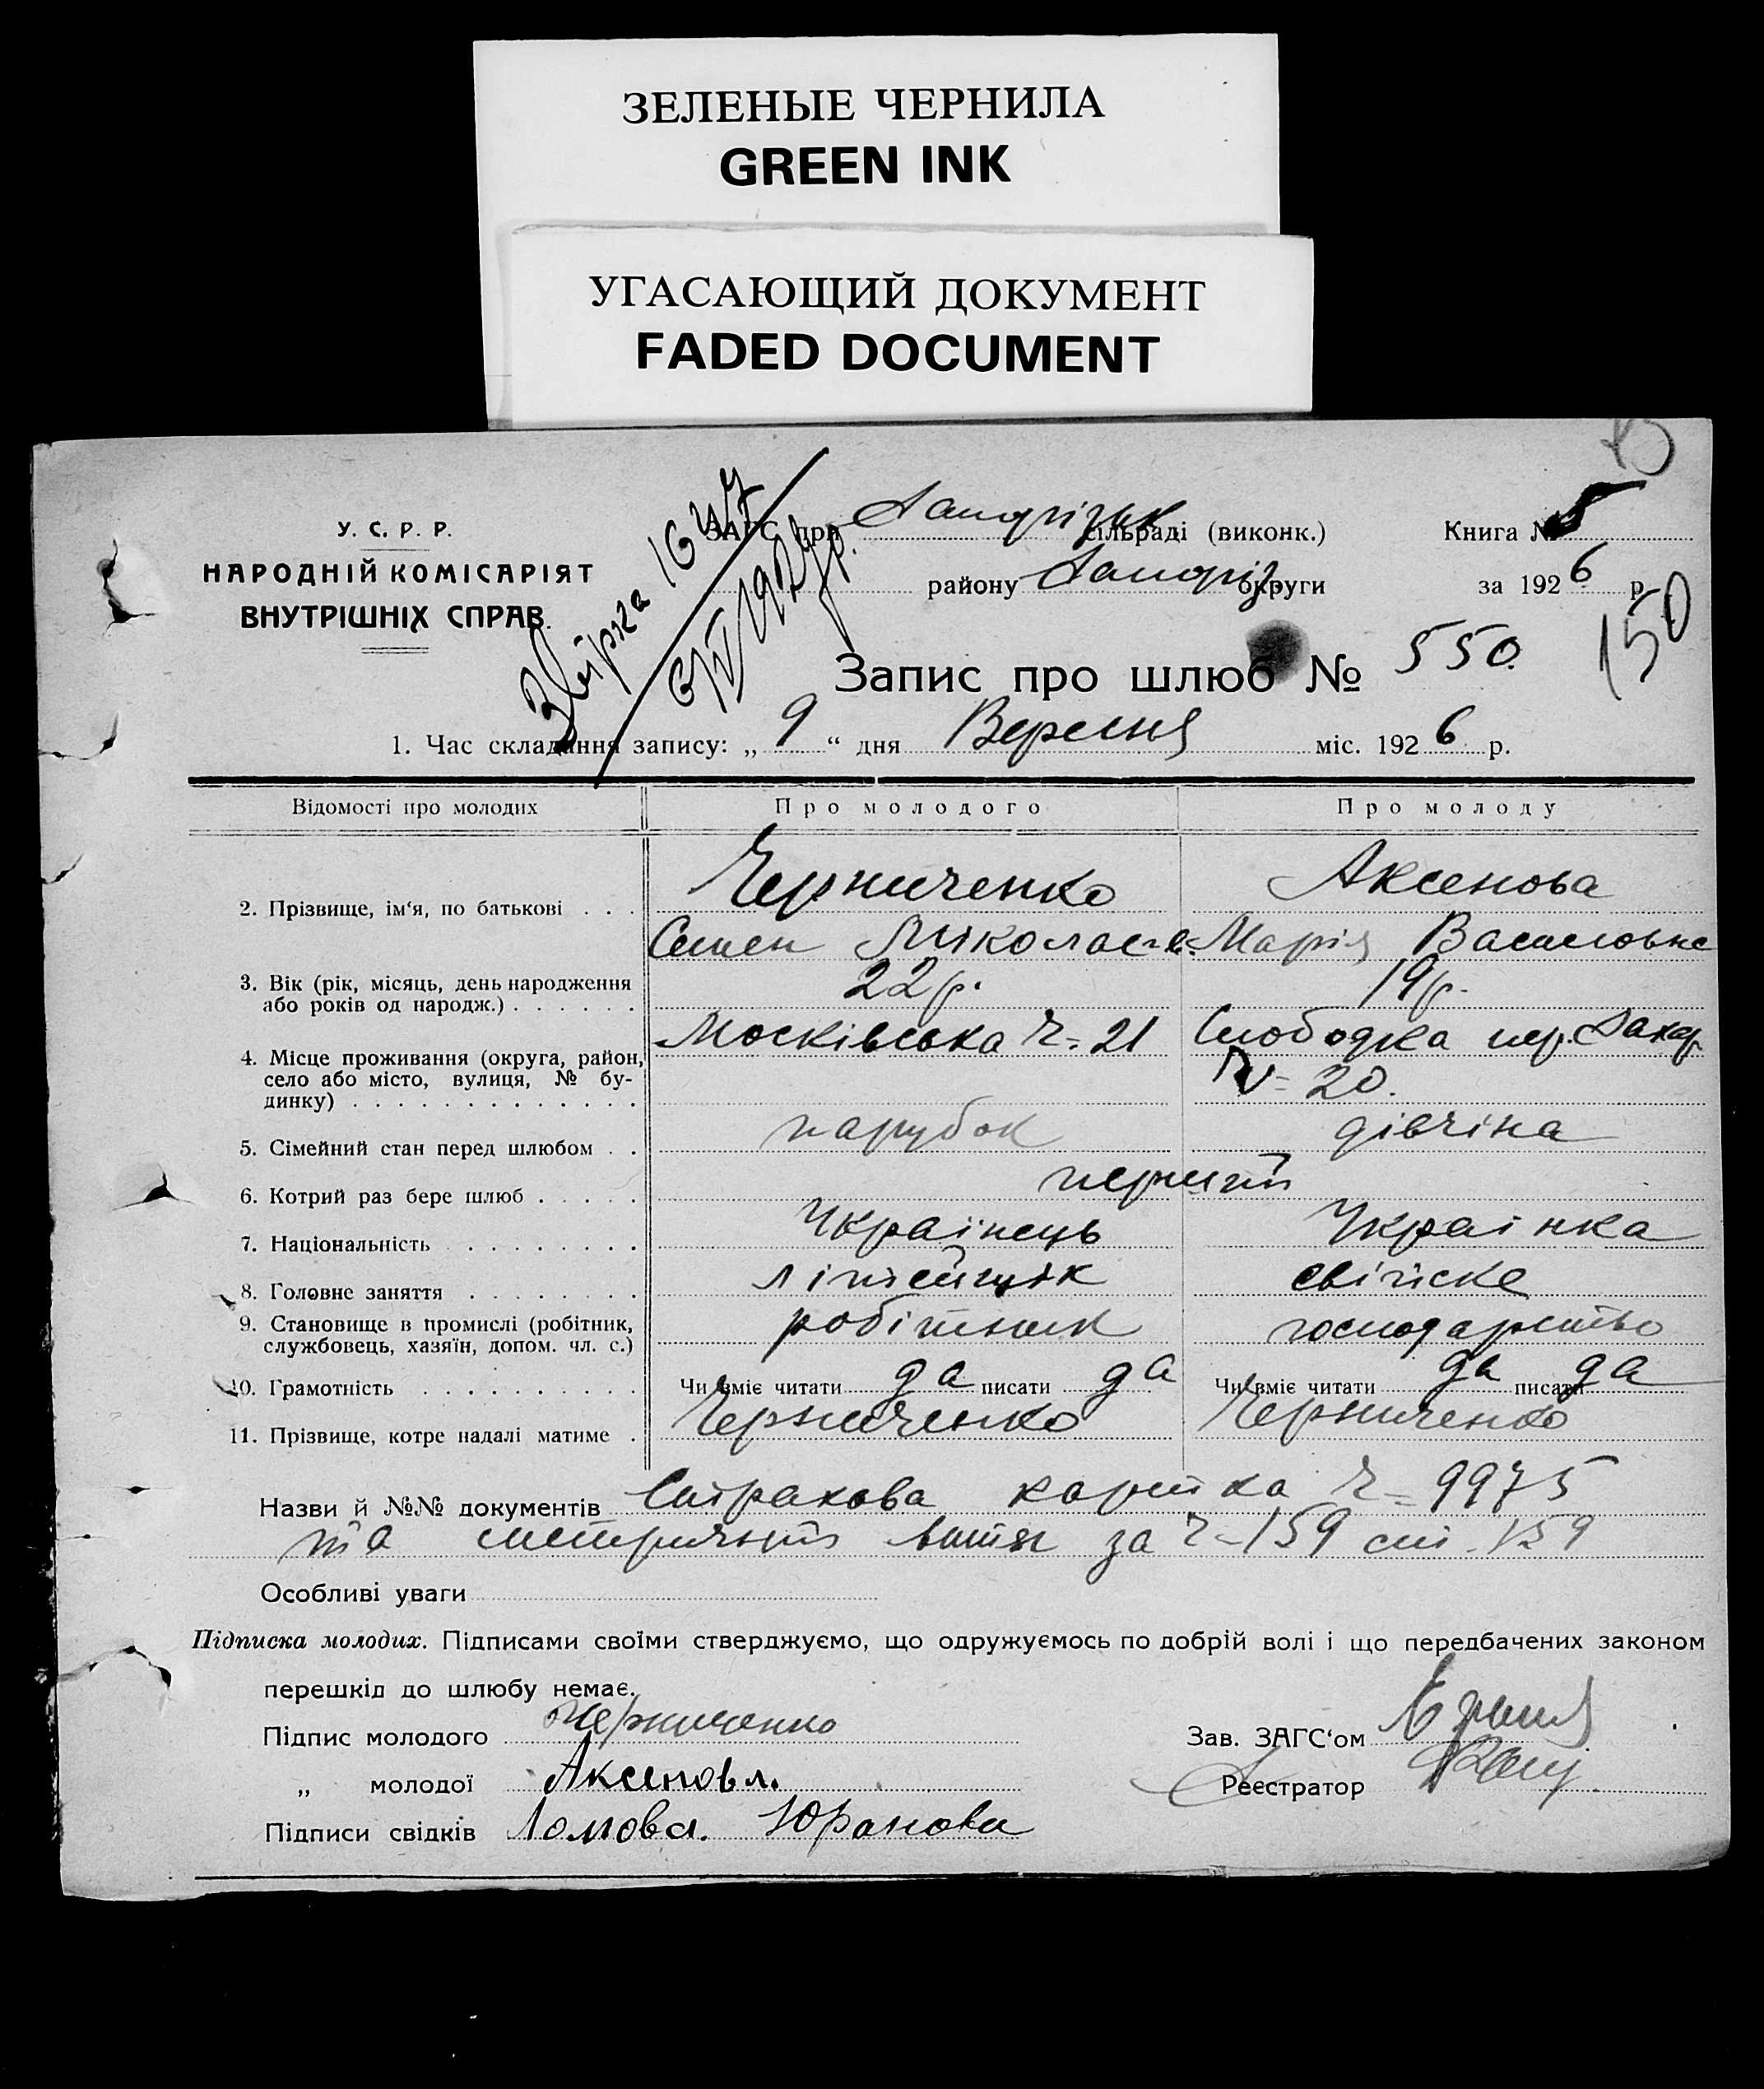 ЗЕЛЕНЫЕ ЧЕРНИЛА
GREEN INK
УГАСАЮЩИЙ ДОКУМЕНТ
FADED DOCUMENT
У. С. Р. Р.
НАРОДНІЙ КОМІСАРІЯТ
ВНУТРІШНІХ СПРАВ.
ЗАГС при сільраді (виконк.) Книга № 5
району округи за 1926 р.
150
Запис про шлюб № 550.
1. Час складання запису: „ 9 “ дня Вересня міс. 1926 р.
Відомості про молодих Про молодого Про молоду
2. Прізвище, ім‘я, по батькові . . . Черниченко Аксенова
Семен Миколаєв. Марія Васильовна
3. Вік (рік, місяць, день народження
або років од народж.) . . . . . . 22 р. 19 р.
4. Місце проживання (округа, район,
село або місто, вулиця, № бу-
динку) . . . . . . . . . . . . . Московська Ч= 21 Слободка пер.
№= 20.
5. Сімейний стан перед шлюбом . . парубок дівчіна
6. Котрий раз бере шлюб . . . . . перший
7. Національність . . . . . . . . Українець Українка
8. Головне заняття . . . . . . . . свійске
9. Становище в промислі (робітник,
службовець, хазяїн, допом. чл. с.) робітник господарство
10. Грамотність . . . . . . . . . . Чи вміє читати да писати да Чи вміє читати да писати да
11. Прізвище, котре надалі матиме . Черниченко Черниченко
Назви й №№ документів Страхова картка Ч= 9975
та витяг за Ч-159 ст. 159
Особливі уваги
Підписка молодих. Підписами своїми стверджуємо, що одружуємось по добрій волі і що передбачених законом
перешкід до шлюбу немає.
Підпис молодого Черниченко Зав. ЗАГС‘ом
„ молодої Аксенова. Реєстратор
Підписи свідків Ломова. Юранова